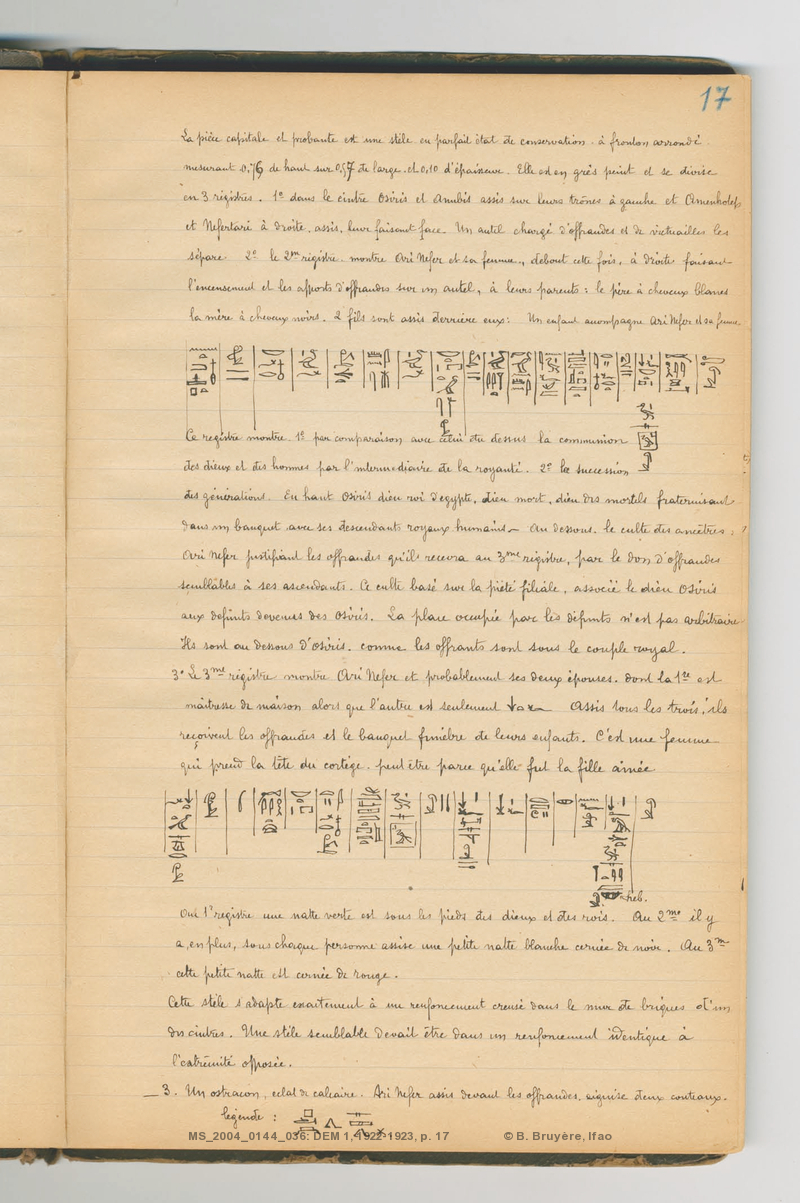 17
La pièce capitale et probante est une stèle en parfait état de conservation. à fronton arrondi
mesurant 0,76 de haut sur 0,47 de large. et 0,10 d'épaisseur. Elle est en grès peint et se divise
en 3 registres. 1° dans le cintre Osiris et Anubis assis sur leurs trônes à gauche et Amenhotep
et Nefertari à droite, assis, leur faisant face. Un autel chargé d'offrandes et de victuailles les
sépare. 2° le 2me registre montre Ari Nefer et sa femme, debout cette fois, à droite faisant
l'encensement et les apports d'offrandes sur un autel, à leurs parents : le père à cheveux blancs
la mère à cheveux noirs. 2 fils sont assis derrière eux : Un enfant accompagne Ari Nefer et sa femme
Ce registre montre. 1° par comparaison avec celui du dessus la communion
des dieux et des hommes par l'intermédiaire de la royauté. 2° la succession
des générations. En haut Osiris dieu roi d'egypte, dieu mort, dieu des mortels fraternisant
dans un banquet avec ses descendants royaux humains – Au dessous. le culte des ancêtres :
Ari Nefer justifiant les offrandes qu'il recevra au 3me registre, par le don d'offrandes
semblables à ses ascendants. Ce culte basé sur la piété filiale, associe le dieu Osiris
aux défunts devenus des Osiris. La place occupée par les défunts n'est pas arbitraire
Ils sont au dessous d'Osiris. comme les offrants sont sous le couple royal.
3° Le 3me registre montre Ari Nefer et probablement ses deux épouses. dont la 1re est
maîtresse de maison alors que l'autre est seulement Assis tous les trois, ils
reçoivent les offrandes et le banquet funèbre de leurs enfants. C'est une femme
qui prend la tête du cortège. peut être parce qu'elle fut la fille aînée
heb.
Au 1r registre une natte verte est sous les pieds des dieux et des rois. Au 2me il y
a, en plus, sous chaque personne assise une petite natte blanche cernée de noir. Au 3m
cette petite natte est cernée de rouge.
Cette stèle s'adapte exactement à un renfoncement creusé dans le mur de briques d'un
des cintres. Une stèle semblable devait être dans un renfoncement identique à
l'extrémité opposée.
_ 3. Un ostracon, eclat de calcaire. Ari Nefer assis devant les offrandes, aiguise deux couteaux.
légende :
MS_2004_0144_036: DEM 1, 1922-1923, p. 17 © B. Bruyère, Ifao